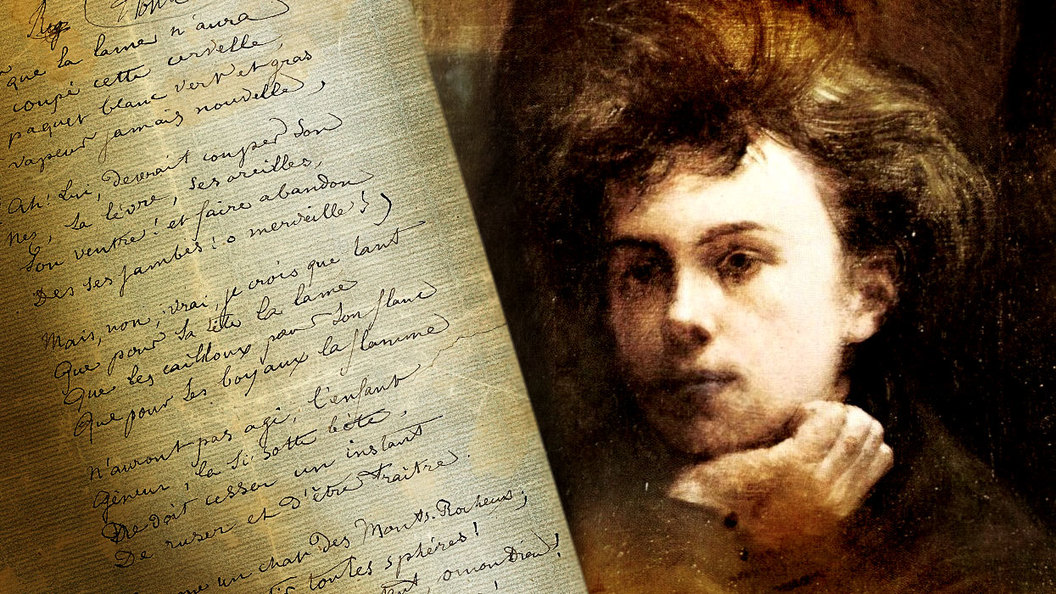 que la lame n'aura
coupé cette cervelle,
paquet blanc vert et gras
vapeur jamais nouvelle,
Ah! Lui, devrait couper son
Nez, sa lèvre, ses oreilles,
Son ventre! et faire abandon
Des ses jambes! o merveille!)
Mais, non, vrai, je crois que tant
Que pour sa tête la lame
Que les cailloux pour son flanc
Que pour ses boyaux la flamme
n'auront pas agi, l'enfant
Gêneur, la si sotte bête,
Ne doit cesser un instant
De ruser et d'être traître.
un chat des Monts-Rocheux;
toutes sphères!
o mon Dieu!